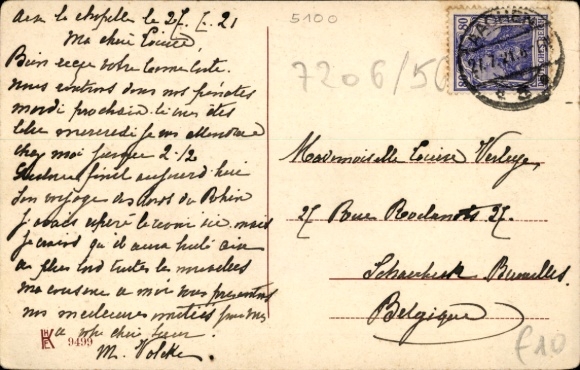 Aix la chapelle le 27. 7. 21
5100
AACHEN
27.7.21.
7206/50
Ma chère Louise,
Bien reçu votre bonne carte.
Nous rentrons dans nos pénates
mardi prochain. si vous êtes
libre mercredi je vous attendrai
chez moi
finit aujourd'hui
son voyage des bords du Rhin
j'avais espéré le revoir ici mais
je crains qu'il aura
a plus tard toutes les nouvelles
ma cousine et moi vous présentons
nos meilleures amitiés
a votre chère sœur.
M. Volcke.
Mademoiselle Louise Verluys,
27 Rue Roelandts 27.
Schaerbeek Bruxelles.
Belgique
9499
£10